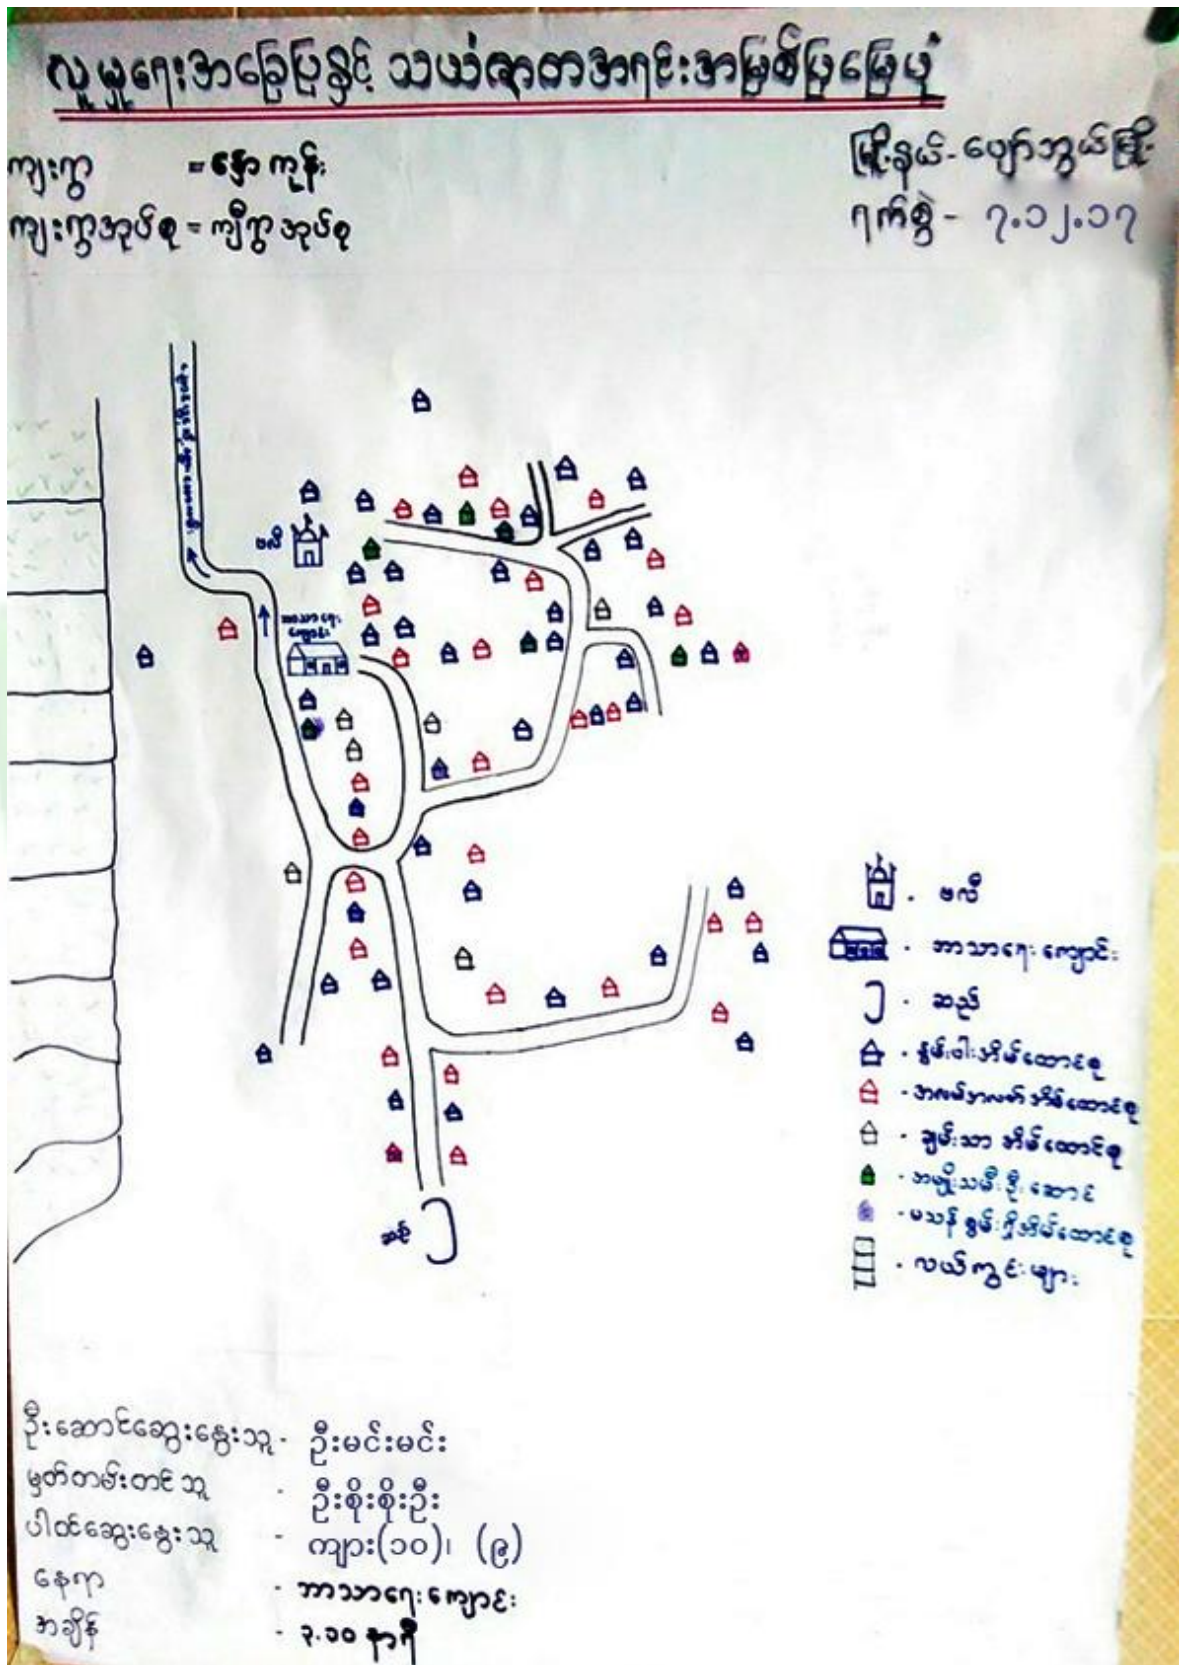 လူမှုရေးအခြေပြနှင့် သယံဇာတအရင်းအမြစ်ပြမြေပုံ
ကျေးရွာ = နှောကုန်း
မြို့နယ် - ပျော်ဘွယ်မြို့
ကျေးရွာအုပ်စု = ကျီရွာအုပ်စု
ရက်စွဲ - ၇.၁၂.၁၇
ဗလီ
ဘာသာရေး
ကျောင်း
ဆည်
ဗလီ
ဘာသာရေးကျောင်း
ဆည်
နွမ်းပါးအိမ်ထောင်စု
အလယ်အလတ်အိမ်ထောင်စု
ချမ်းသာအိမ်ထောင်စု
အမျိုးသမီးဦးဆောင်
မသန်စွမ်းရှိအိမ်ထောင်စု
လယ်ကွင်းများ
ဦးဆောင်ဆွေးနွေးသူ - ဦးမင်းမင်း
မှတ်တမ်းတင်သူ - ဦးစိုးစိုးဦး
ပါဝင်ဆွေးနွေးသူ - ကျား(၁၀)၊ (၉)
နေရာ - ဘာသာရေးကျောင်း
အချိန် - ၃.၁၀ နာရီ